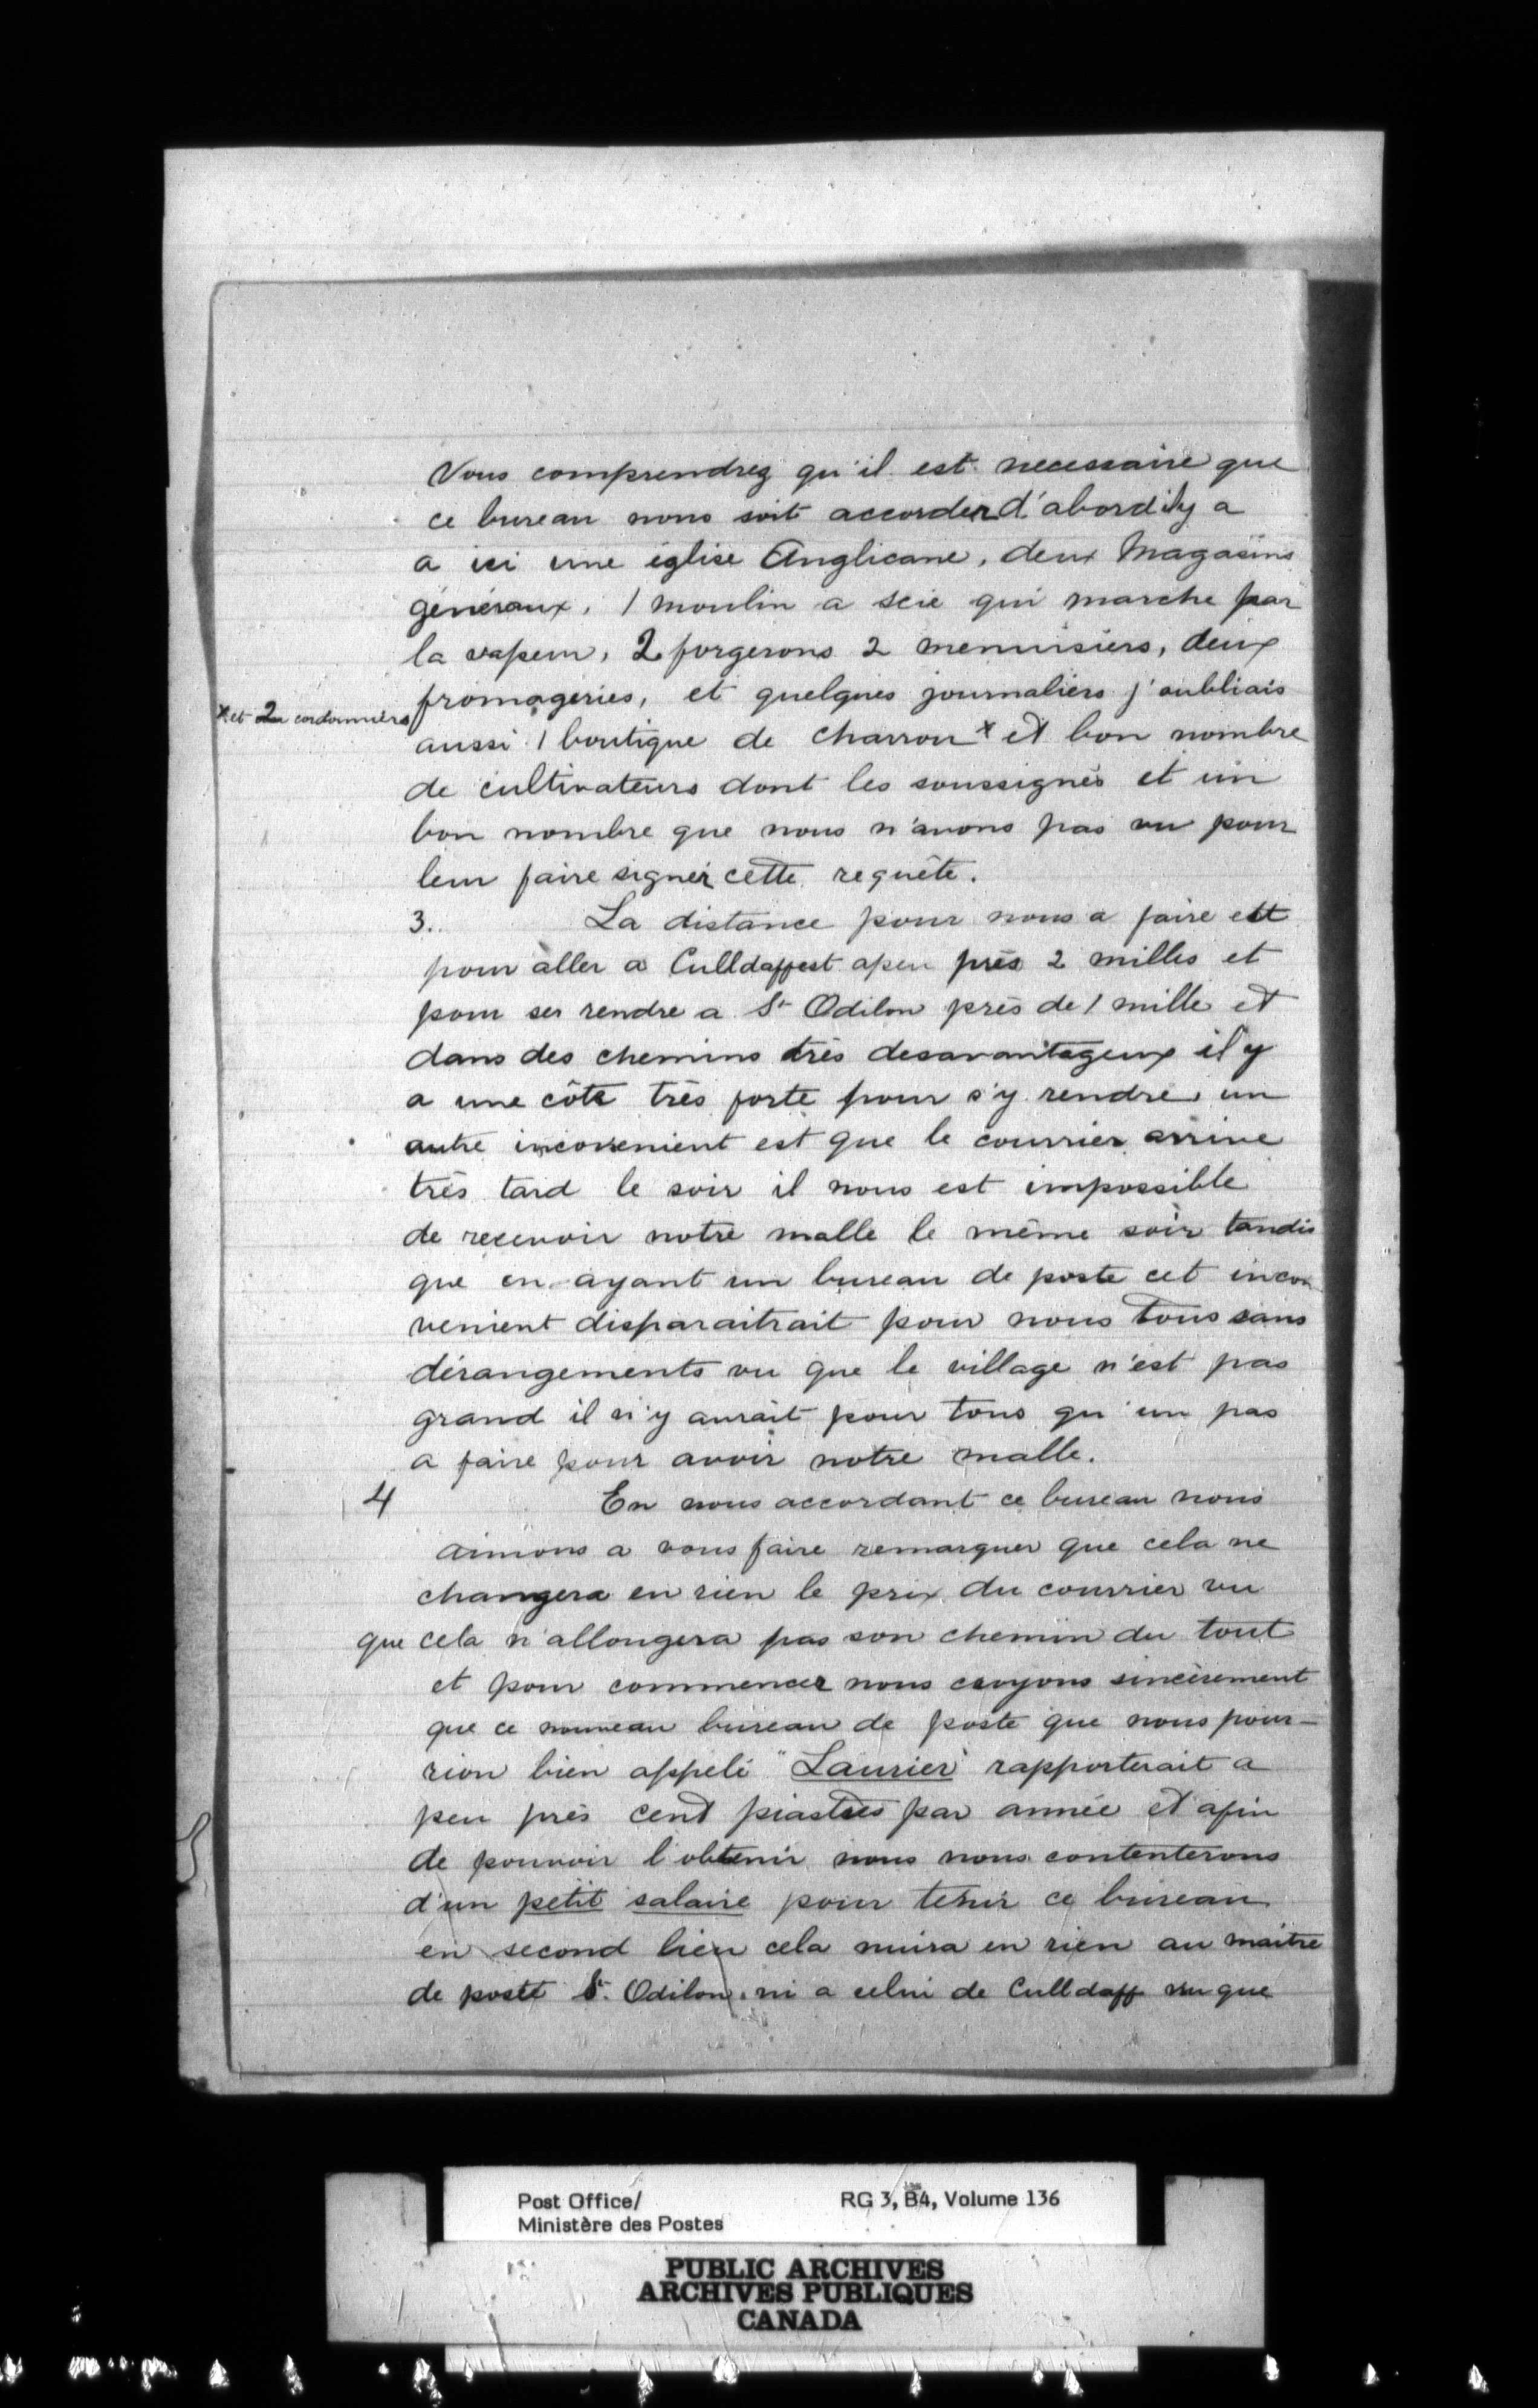 Vous comprendrez qu'il est necessaire que
ce bureau nous soit accorder d'abord il y a
a ici une église Anglicane, deux Magasins
généraux, 1 moulin a scie qui marche par
la vapeur, 2 forgerons 2 menuisiers, deux
fromageries, et quelques journaliers j'oubliais
x et 2 cordonniers
aussi 1 boutique de charron x et bon nombre
de cultivateurs dont les soussignés et un
bon nombre que nous n'avons pas vu pour
leur faire signer cette requête.
3. La distance pour nous a faire est
pour aller a Culldaff est apeu près 2 milles et
pour ses rendre a St Odilon près de 1 mille et
dans des chemins très desavantageux il y
a une côte très forte pour s'y rendre, un
autre inconvenient est que le courrier arrive
très tard le soir il nous est impossible
de recevoir notre malle le même soir tandis
que en ayant un bureau de poste cet incon
venient disparaitrait pour nous tous sans
dérangements vu que le village n'est pas
grand il n'y aurait pour tous qu'un pas
a faire pour avoir notre malle.
4 En nous accordant ce bureau nous
aimons a vous faire remarquer que cela ne
changera en rien le prix du courrier vu
que cela n'allongera pas son chemin du tout
et pour commencer nous croyons sincèrement
que ce nouveau bureau de poste que nous pour-
rion bien appelé "Laurier" rapporterait a
peu près cent piastres par année et afin
de pouvoir l'obtenir nous nous contenterons
d'un petit salaire pour tenir ce bureau
en second lieu cela nuira en rien au maître
de poste St. Odilon, ni a celui de Culldaff vu que
Post Office/
Ministère des Postes
RG 3, B4, Volume 136
PUBLIC ARCHIVES
ARCHIVES PUBLIQUES
CANADA